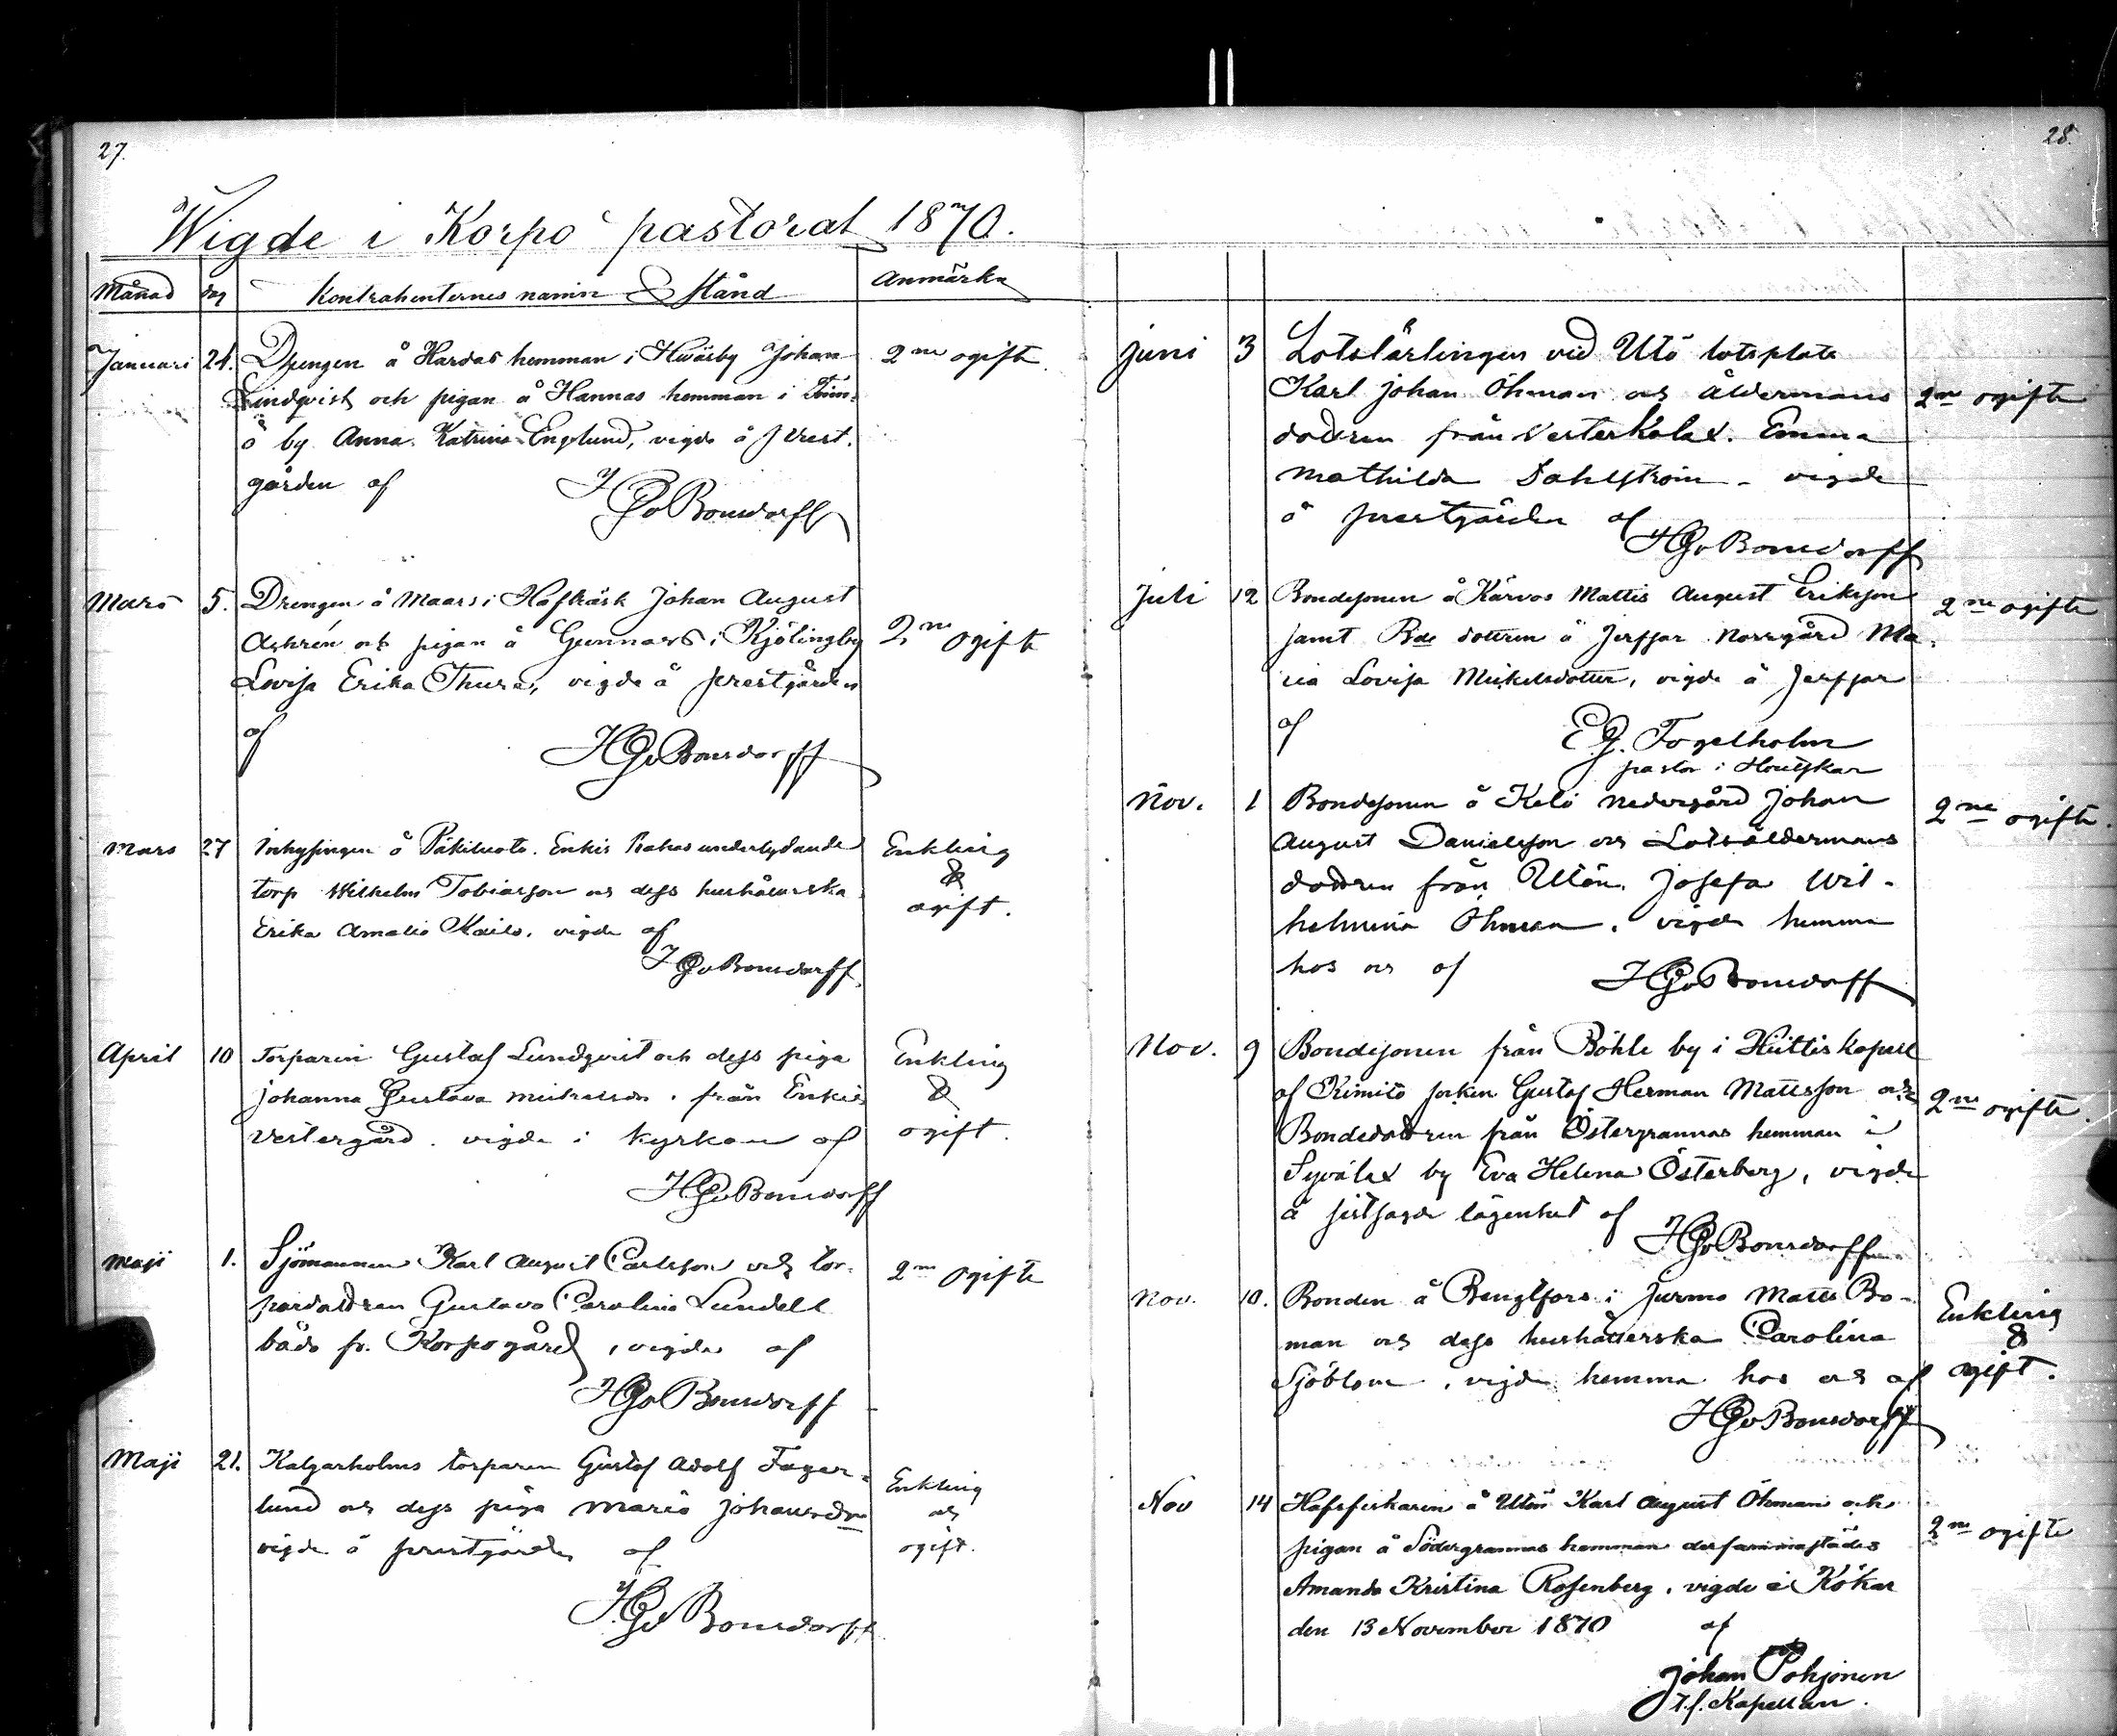 27.
Wigde i Korpo pastorat 1870.
Månad dag Kontrahenternes namn & Stånd Anmärkn
Januari 24. Drengen å Hardas hemman i Hvärby Johan 2ne ogifte.
Lindqvist och pigan å Hannas hemman i
ö by Anna Katrina Englund, vigde å Prest-
gården af
HGvBonsdorff
Mars 5. Drengen å Maars i Hafträsk Johan August
och pigan å Gunnars i Kjölingby 2ne ogifte
Lovisa Erika Thure, vigde å prestgården
af
HGvBonsdorff
Mars 27 Inhysingen å Enkis underlydande Enkling
torp Wilhelm Tobiasson och dess hushållerska &
Erika Amalia vigde af ogift.
HGvBonsdorff
April 10 Torparen Gustaf Lundqvist och dess piga Enkling
Johanna Gustava Mickelsdr. från Enkis &
Vestergård. vigde i kyrkan af ogift.
HGvBonsdorff
Maji 1. Sjömannen Karl August Carlsson och tor- 2ne ogifte
pardottren Gustava Carolina Lundell
båda fr. Korpogård, vigde af
HGvBonsdorff
Maji 21. Kalgarholms torparen Gustaf Adolf Fager-
lund och dess piga Maria Johansdr Enkling och
vigde å prestgården af ogift.
HGvBonsdorff
28.
Juni 3 Lotslärlingen vid Utö lotsplats
Karl Johan Öhman och Åldermans 2ne ogifte
dottren från Vesterkalax. Emma
Mathilda Dahlström - vigde
å prestgården af
HGvBonsdorff
Juli 12 Bondesonen å Kärvas Mattis August Eriksson 2ne ogifte
samt Bde dottren å Jerfsar Norrgård Ma-
ria Lovisa Mickelsdotter, vigde å Jerfsar
af
E.G. Fogelholm
pastor i Houtskar
Nov. 1 Bondesonen å Kelö Nedergård Johan 2ne ogifte.
August Danielsson och Lotsåldermans
dottren från Utön. Josefa Wil-
helmina Öhman. vigde hemma
hos oss af
HGvBonsdorff
Nov. 9 Bondesonen från Böhle by i Hiittis kapell
af Kimito socken Gustaf Herman Mattsson och 2ne ogifte.
Bondedottren från Östergrannas hemman i
Syvälax by Eva Helena Österberg, vigde
å sistsagde lägenhet af
HGvBonsdorff
Nov. 10. Bonden å Bengtsars i Jurmo Matts Bo- Enkling
man och dess hushållerska Carolina &
Sjöblom, vigde hemma hos oss af ogift.
HGvBonsdorff
Nov 14 Hafsfiskaren å Utön Karl August Öhman och
pigan å Södergrannas hemman dersammastädes 2ne ogifte
Amanda Kristina Rosenberg, vigde i Kökar
den 13 November 1870 af
Johan Pohjonen
t.f. Kapellan.